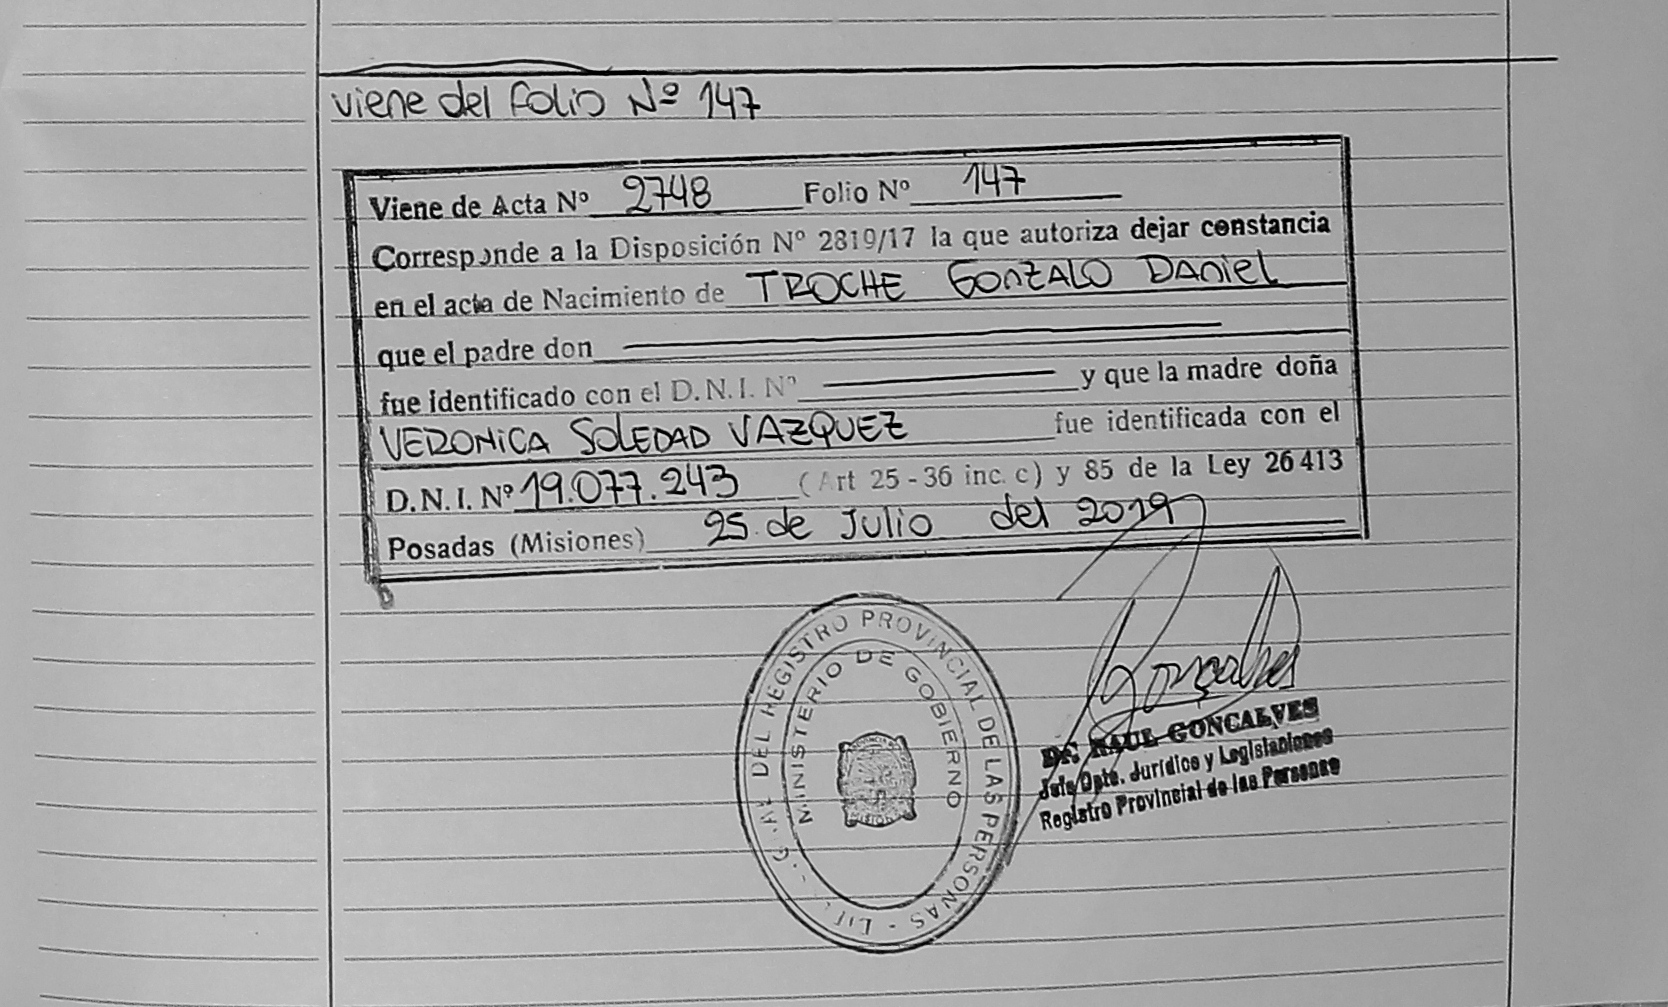 viene del folio Nº 147
Viene de Acta Nº 2748 Folio Nº 147
Corresponde a la Disposición Nº 2819/17 la que autoriza dejar constancia
en el acta de Nacimiento de TROCHE GONZALO DANIEL
que el padre don
fue identificado con el D.N.I. Nº y que la madre doña
VERONICA SOLEDAD VAZQUEZ fue identificada con el
D.N.I. Nº 19.077.243 (Art 25-36 inc. c) y 85 de la Ley 26413
Posadas (Misiones) 25 de Julio del 2019
DEL REGISTRO PROVINCIAL DE LAS PERSONAS
MINISTERIO DE GOBIERNO
Goncalves
Dr. RAUL GONCALVES
Jefe Dpto. Jurídico y Legislaciones
Registro Provincial de las Personas